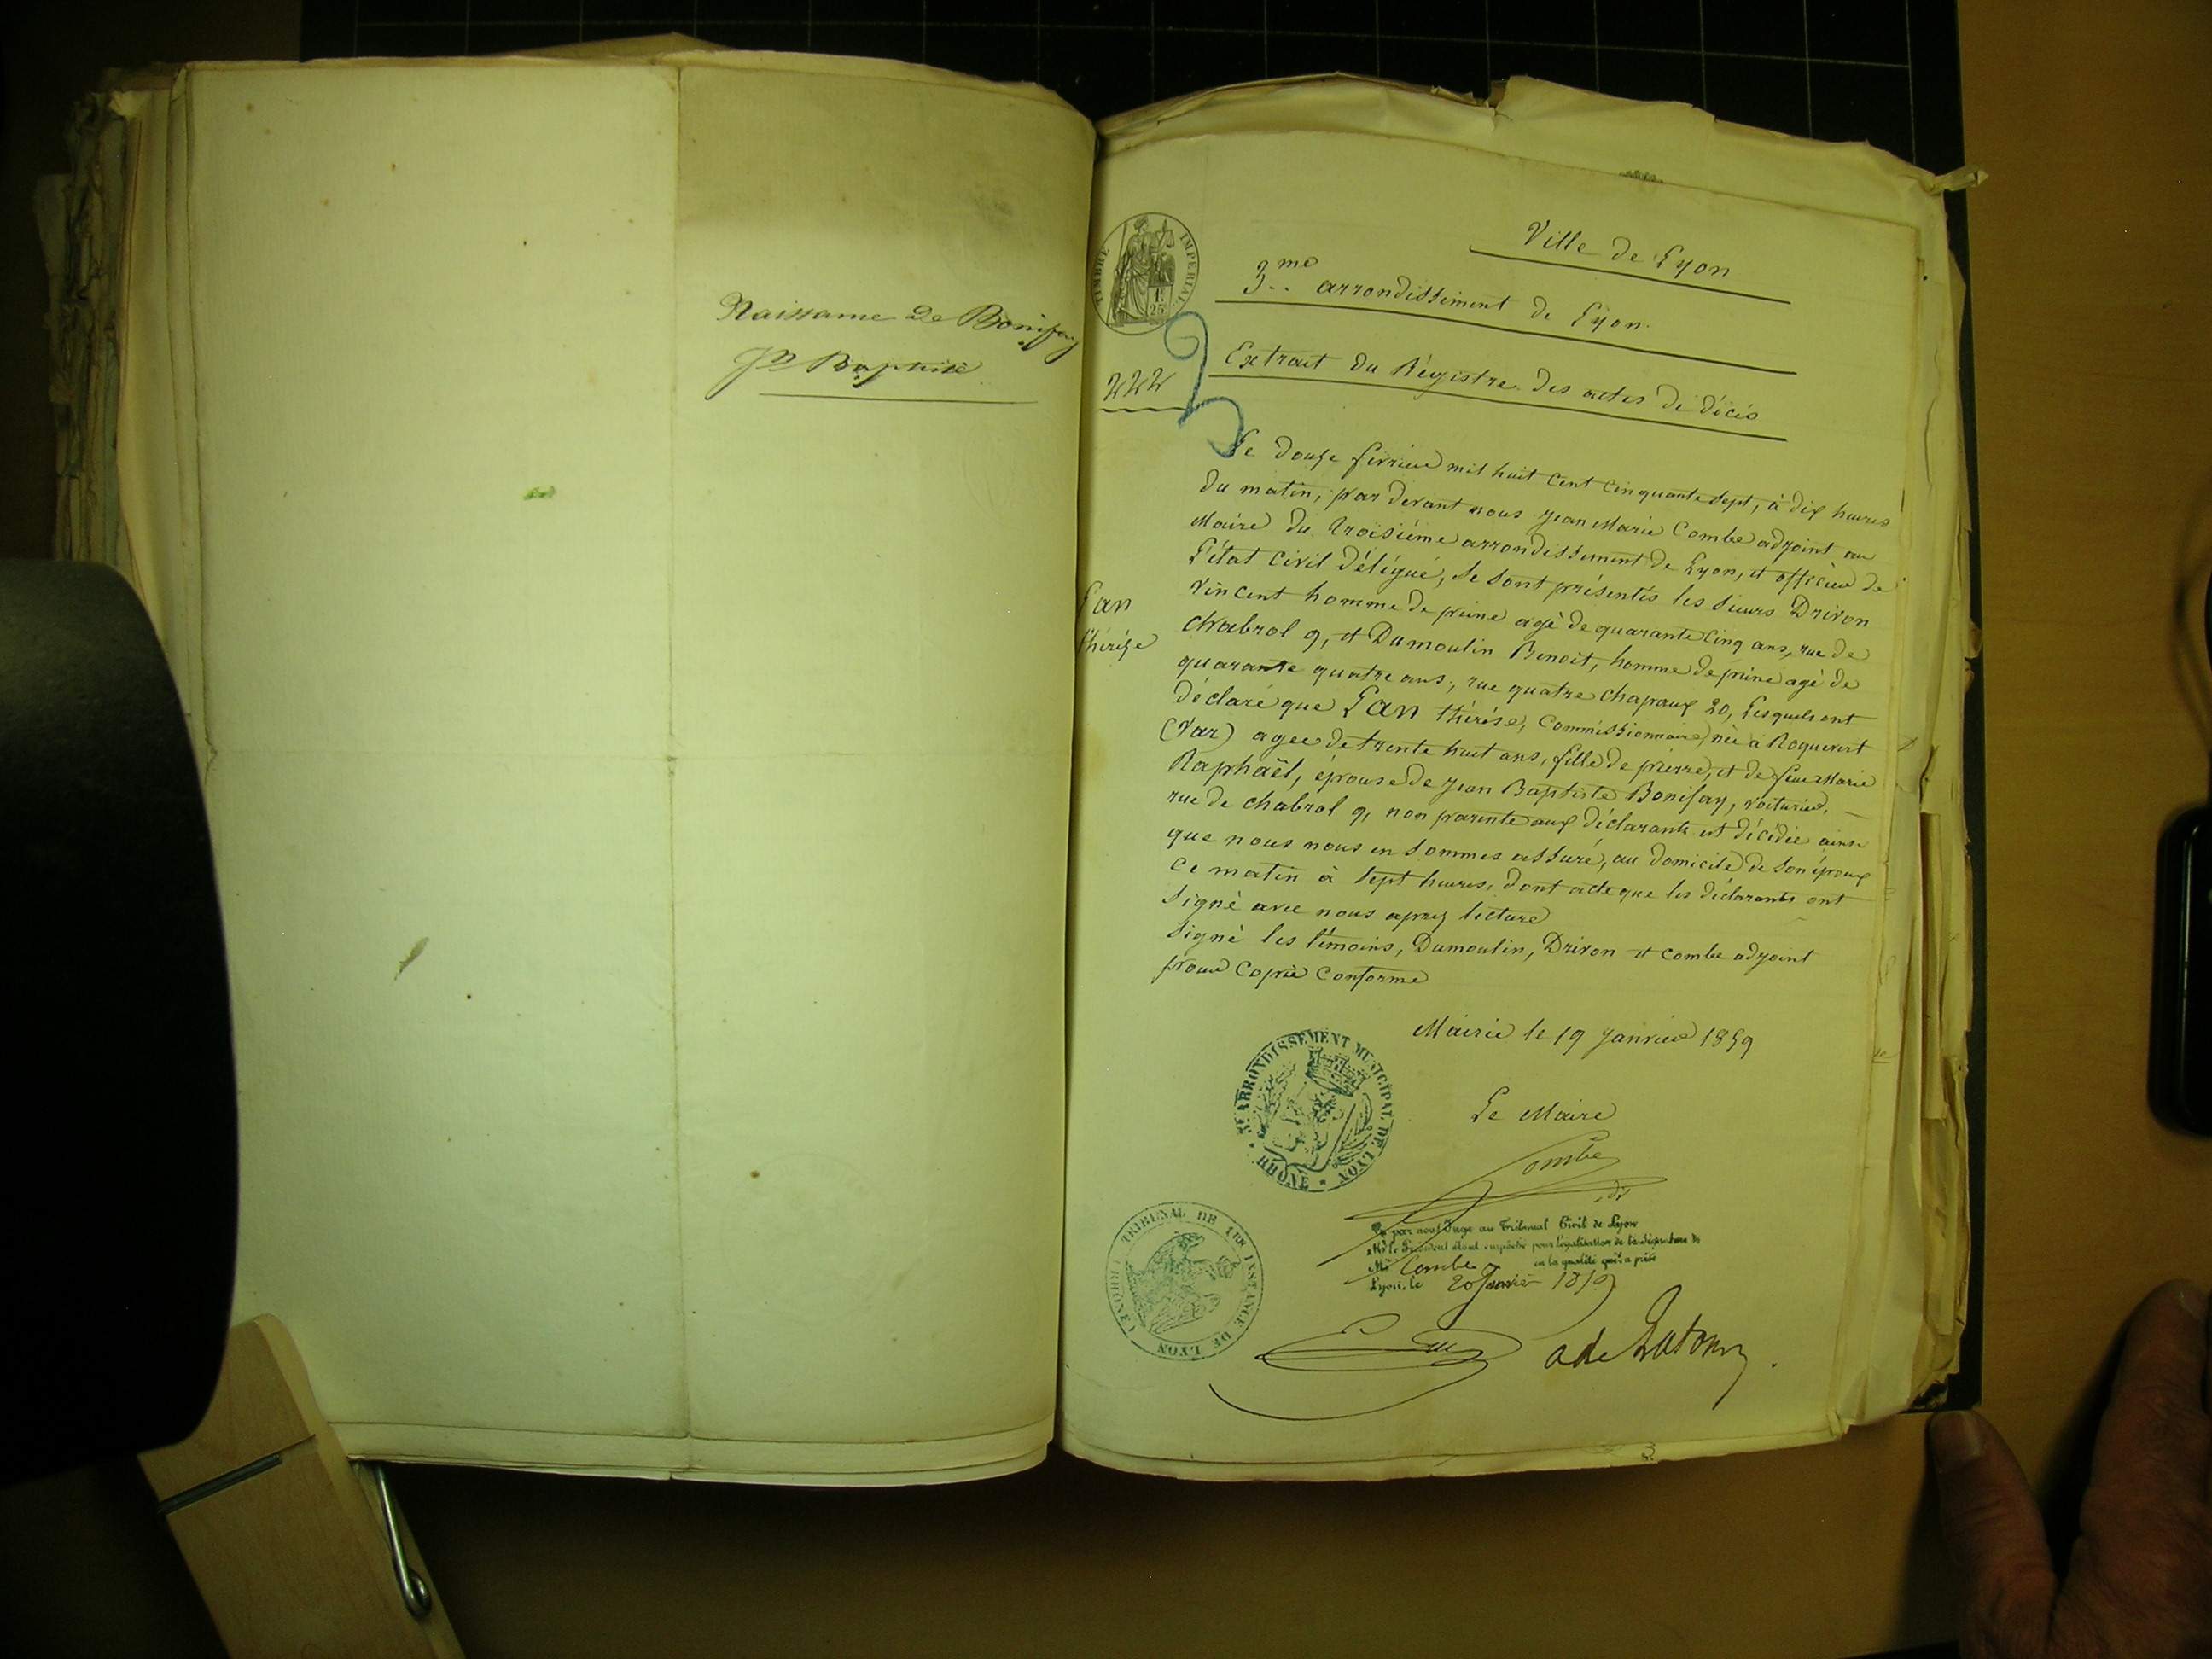 Naissance de Bonifay
Jn Baptiste
TIMBRE IMPERIAL
1 F.
25
Ville de Lyon
3me arrondissement de Lyon.
Extrait du Régistre des actes de décès
222
Le douze fevrier mil huit cent cinquante sept, à dix heures
du matin, par devant nous Jean Marie Combe adjoint au
Maire du troisième arrondissement de Lyon, et officier de
L'état civil délégué, se sont présentés les sieurs Drivon
Vincent homme de peine agé de quarante cinq ans, rue de
Chabrol 9, et Dumoulin Benoit, homme de peine agé de
quarante quatre ans, rue quatre chapeaux 20, Lesquels ont
déclaré que Lan thérèse, Commissionnaire, née à Roquevert
(Var) agee de trente huit ans, fille de pierre, et de feue Marie
Raphaël, épouse de Jean Baptiste Bonifay, voiturier,
rue de chabrol 9, non parente aux déclarants est décédée ainsi
que nous nous en sommes assuré, au domicile de son époux
ce matin à sept heures, dont acte que les déclarants ont
signé avec nous après lecture
Signé les témoins, Dumoulin, Drivon et combe adjoint
pour Copie Conforme
Lan
thérèze
Mairie le 19 Janvier 1859
Le Maire
Combe
3E ARRONDISSEMENT MUNICIPAL DE LYON
RHÔNE
Vu par nous Juge au Tribunal Civil de Lyon
Mr le Président étant empêché pour légalisation de la signature de
Mr Combe en la qualité qu'il a prise
Lyon, le 20 Janvier 1859
TRIBUNAL DE 1RE INSTANCE DE LYON (RHONE)
a de Latour